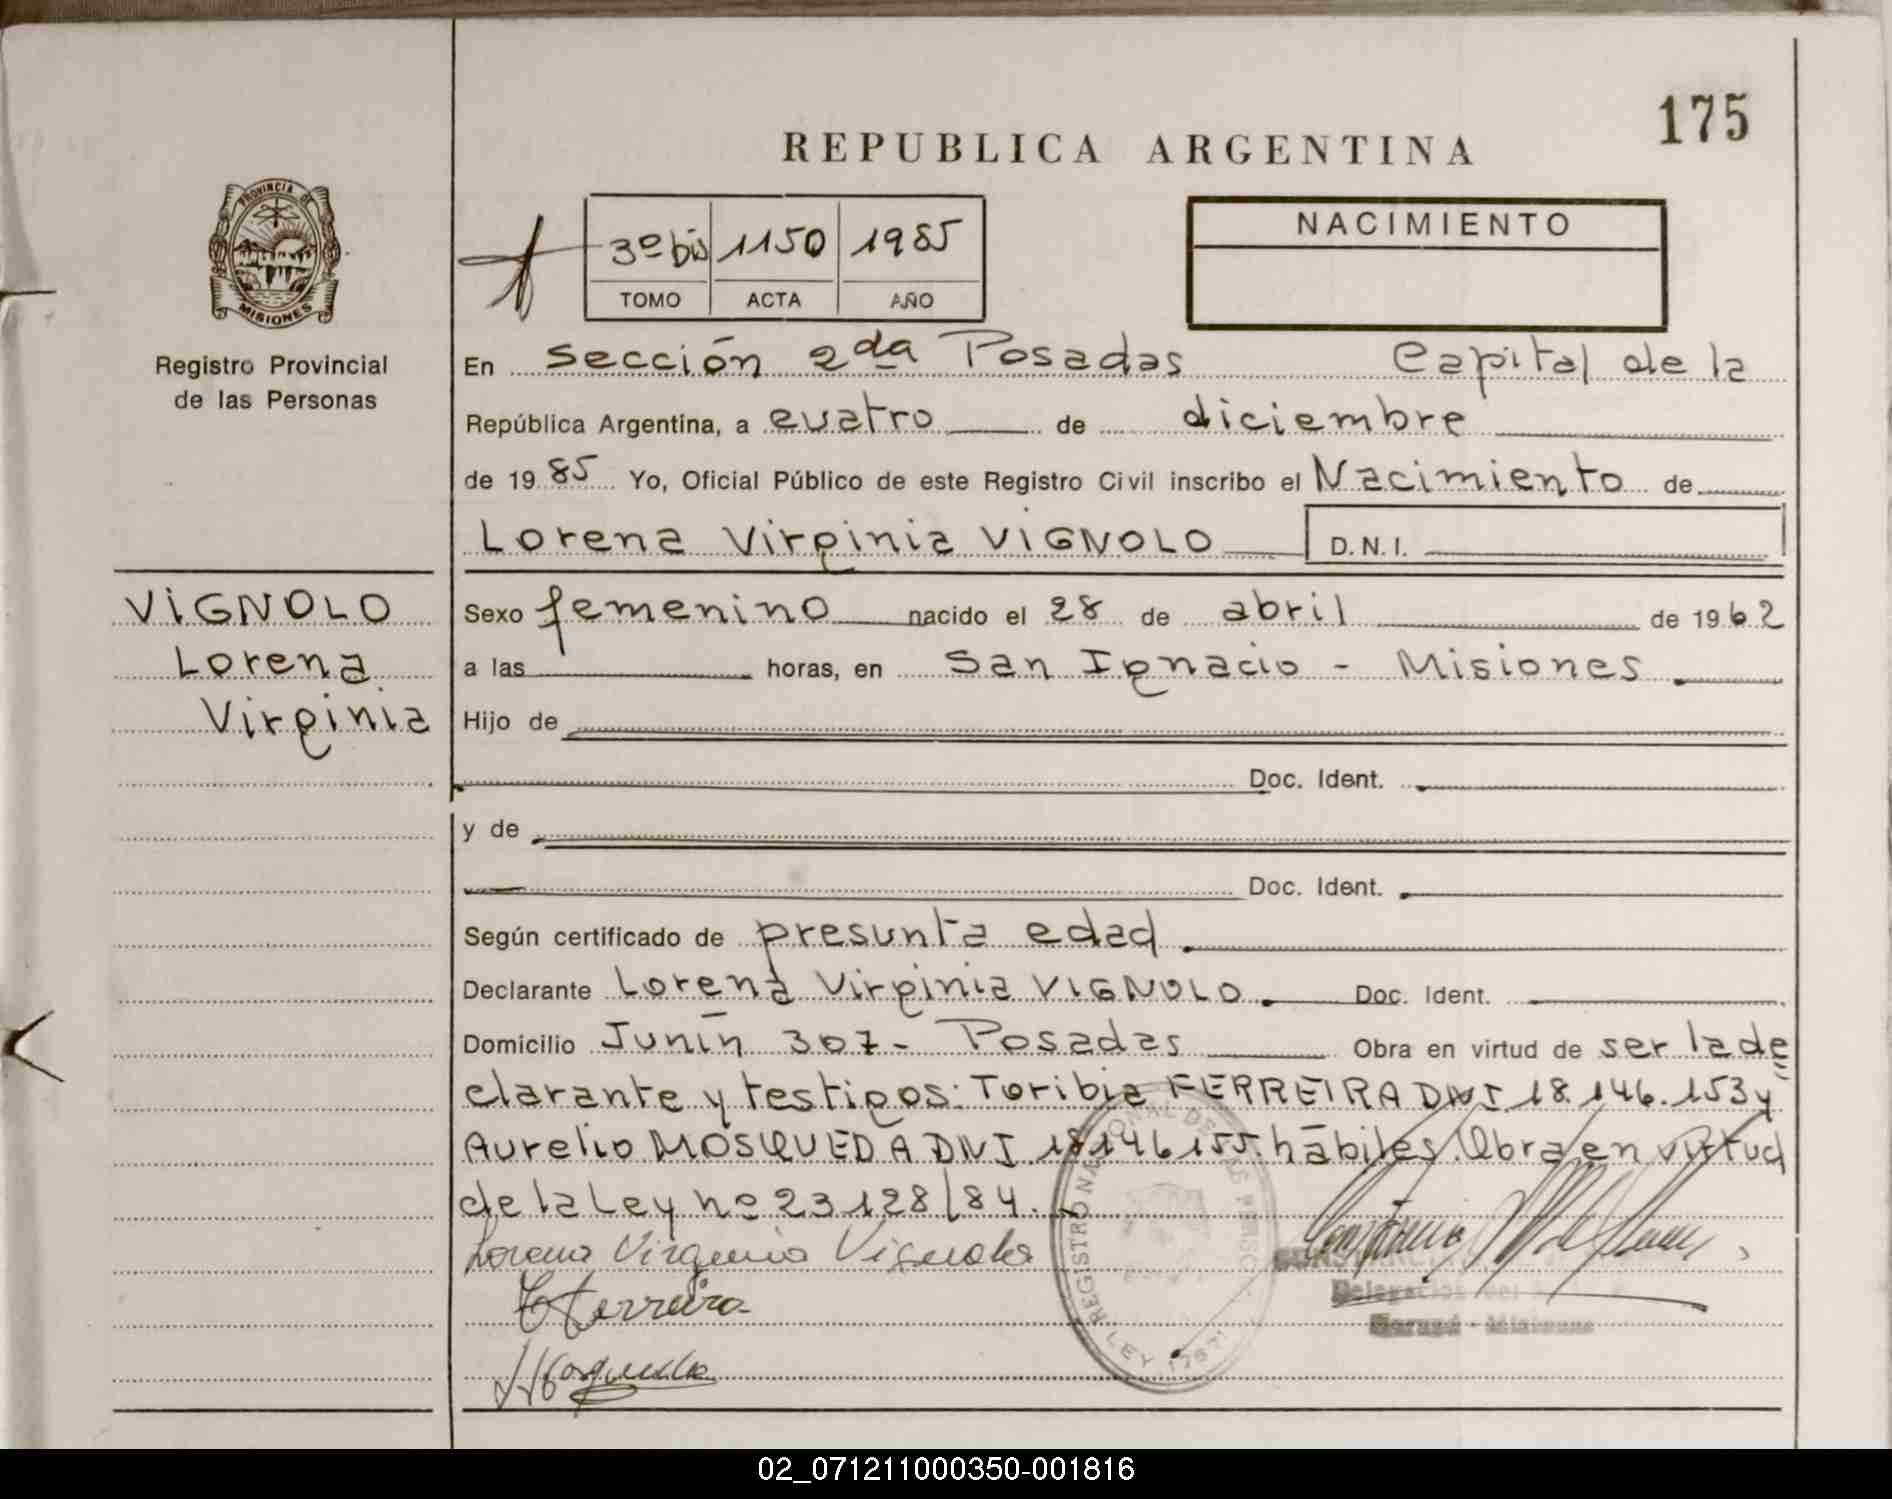 175
REPUBLICA ARGENTINA
PROVINCIA DE
MISIONES
Registro Provincial
de las Personas
3º bis 1150 1985
TOMO ACTA AÑO
NACIMIENTO
En Sección 2da Posadas Capital de la
República Argentina, a cuatro de diciembre
de 1985 Yo, Oficial Público de este Registro Civil inscribo el Nacimiento de
Lorena Virginia VIGNOLO D.N.I.
VIGNOLO
Lorena
Virginia
Sexo femenino nacido el 28 de abril de 1962
a las horas, en San Ignacio - Misiones
Hijo de
Doc. Ident.
y de
Doc. Ident.
Según certificado de presunta edad
Declarante Lorena Virginia VIGNOLO Doc. Ident.
Domicilio Junín 307 - Posadas Obra en virtud de ser la de
clarante y testigos: Toribia FERREIRA DNI 18.146.153 y
Aurelio MOSQUEDA DNI 18146155 hábiles. Obra en virtud
de la Ley nº 23128/84.
Lorena Virginia Vignolo
T Ferreira
A Mosqueda
REGISTRO NACIONAL DE LAS PERSO
LEY 17671
Delegación
Misiones
02_071211000350-001816